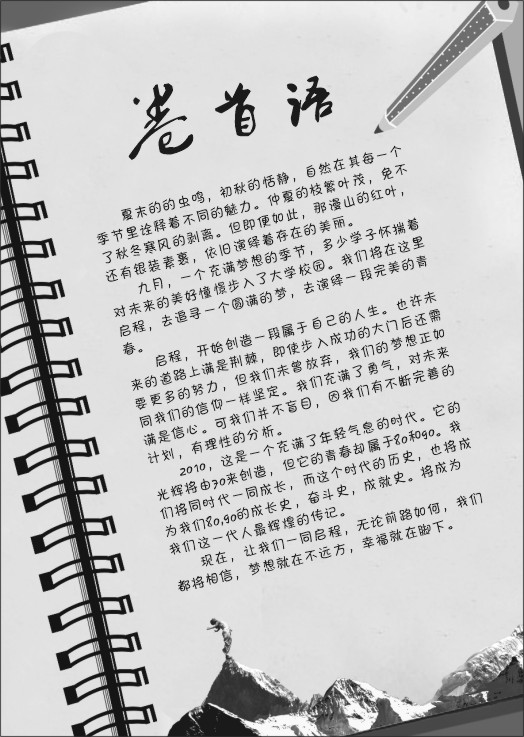 卷首语
夏末的的虫鸣，初秋的恬静，自然在其每一个
季节里诠释着不同的魅力。仲夏的枝繁叶茂，免不
了秋冬寒风的剥离。但即便如此，那漫山的红叶，
还有银装素裹，依旧演绎着存在的美丽。
九月，一个充满梦想的季节，多少学子怀揣着
对未来的美好憧憬步入了大学校园。我们将在这里
启程，去追寻一个圆满的梦，去演绎一段完美的青
春。
启程，开始创造一段属于自己的人生。也许未
来的道路上满是荆棘，即使步入成功的大门后还需
要更多的努力，但我们未曾放弃，我们的梦想正如
同我们的信仰一样坚定。我们充满了勇气，对未来
满是信心。可我们并不盲目，因我们有不断完善的
计划，有理性的分析。
2010，这是一个充满了年轻气息的时代。它的
光辉将由70来创造，但它的青春却属于80和90。我
们将同时代一同成长，而这个时代的历史，也将成
为我们80,90的成长史，奋斗史，成就史。将成为
我们这一代人最辉煌的传记。
现在，让我们一同启程，无论前路如何，我们
都将相信，梦想就在不远方，幸福就在脚下。